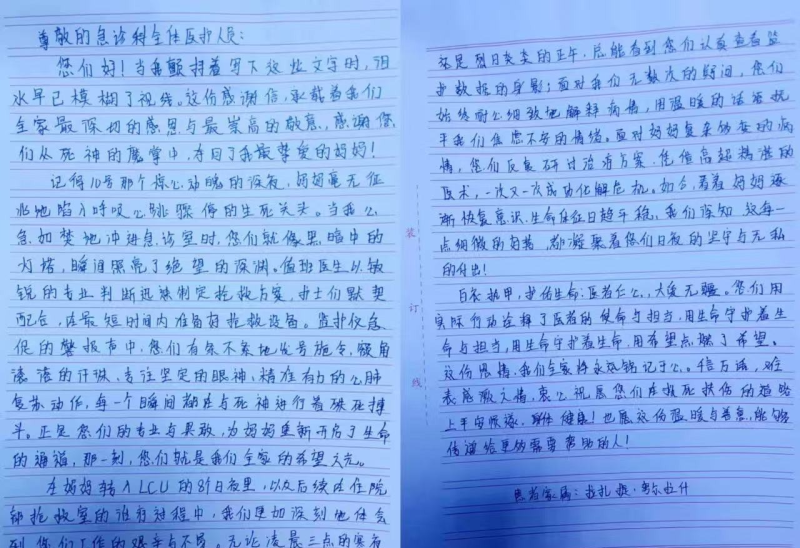 尊敬的急诊科全体医护人员：
您们好！当我颤抖着写下这些文字时，泪
水早已模糊了视线。这份感谢信，承载着我们
全家最深切的感恩与最崇高的敬意，感谢您
们从死神的魔掌中，夺回了我最挚爱的妈妈！
记得10号那个惊心动魄的深夜，妈妈毫无征
兆地陷入呼吸心跳骤停的生死关头。当我心
急如焚地冲进急诊室时，您们就像黑暗中的
灯塔，瞬间照亮了绝望的深渊。值班医生以敏
锐的专业判断迅速制定抢救方案，护士们默契
配合，在最短时间内准备好抢救设备。监护仪急
促的警报声中，您们有条不紊地发号施令，额角
滚滚的汗珠，专注坚定的眼神，精准有力的心肺
复苏动作，每一个瞬间都在与死神进行着殊死搏
斗。正是您们的专业与果敢，为妈妈重新开启了生命
的通道，那一刻，您们就是我们全家的希望之光。
在妈妈转入LCU的8个日夜里，以及后续在住院
部抢救室的治疗过程中，我们更加深刻地体会
到你们工作的艰辛与不易。无论凌晨三点的寒夜
还是烈日炎炎的正午，总能看到您们认真查看监
护数据的身影；面对我们无数次的疑问，您们
始终耐心细致地解释病情，用温暖的话语抚
平我们焦虑不安的情绪。面对妈妈复杂多变的病
情，您们反复研讨治疗方案，凭借高超精湛的
医术，一次又一次成功化解危机。如今，看着妈妈逐
渐恢复意识，生命体征日趋平稳，我们深知，这每一
点细微的好转，都凝聚着您们日夜的坚守与无私
的付出！
白衣执甲，护佑生命；医者仁心，大爱无疆。您们用
实际行动诠释了医者的使命与担当，用生命守护着生
命与担当，用生命守护着生命，用希望点燃了希望。
这份恩情，我们全家将永远铭记于心。千言万语，难
表感激之情，衷心祝愿您们在救死扶伤的道路
上平安顺遂，身体健康！也愿这份温暖与善意，能够
传递给更多需要帮助的人！
患者家属：
装
订
线